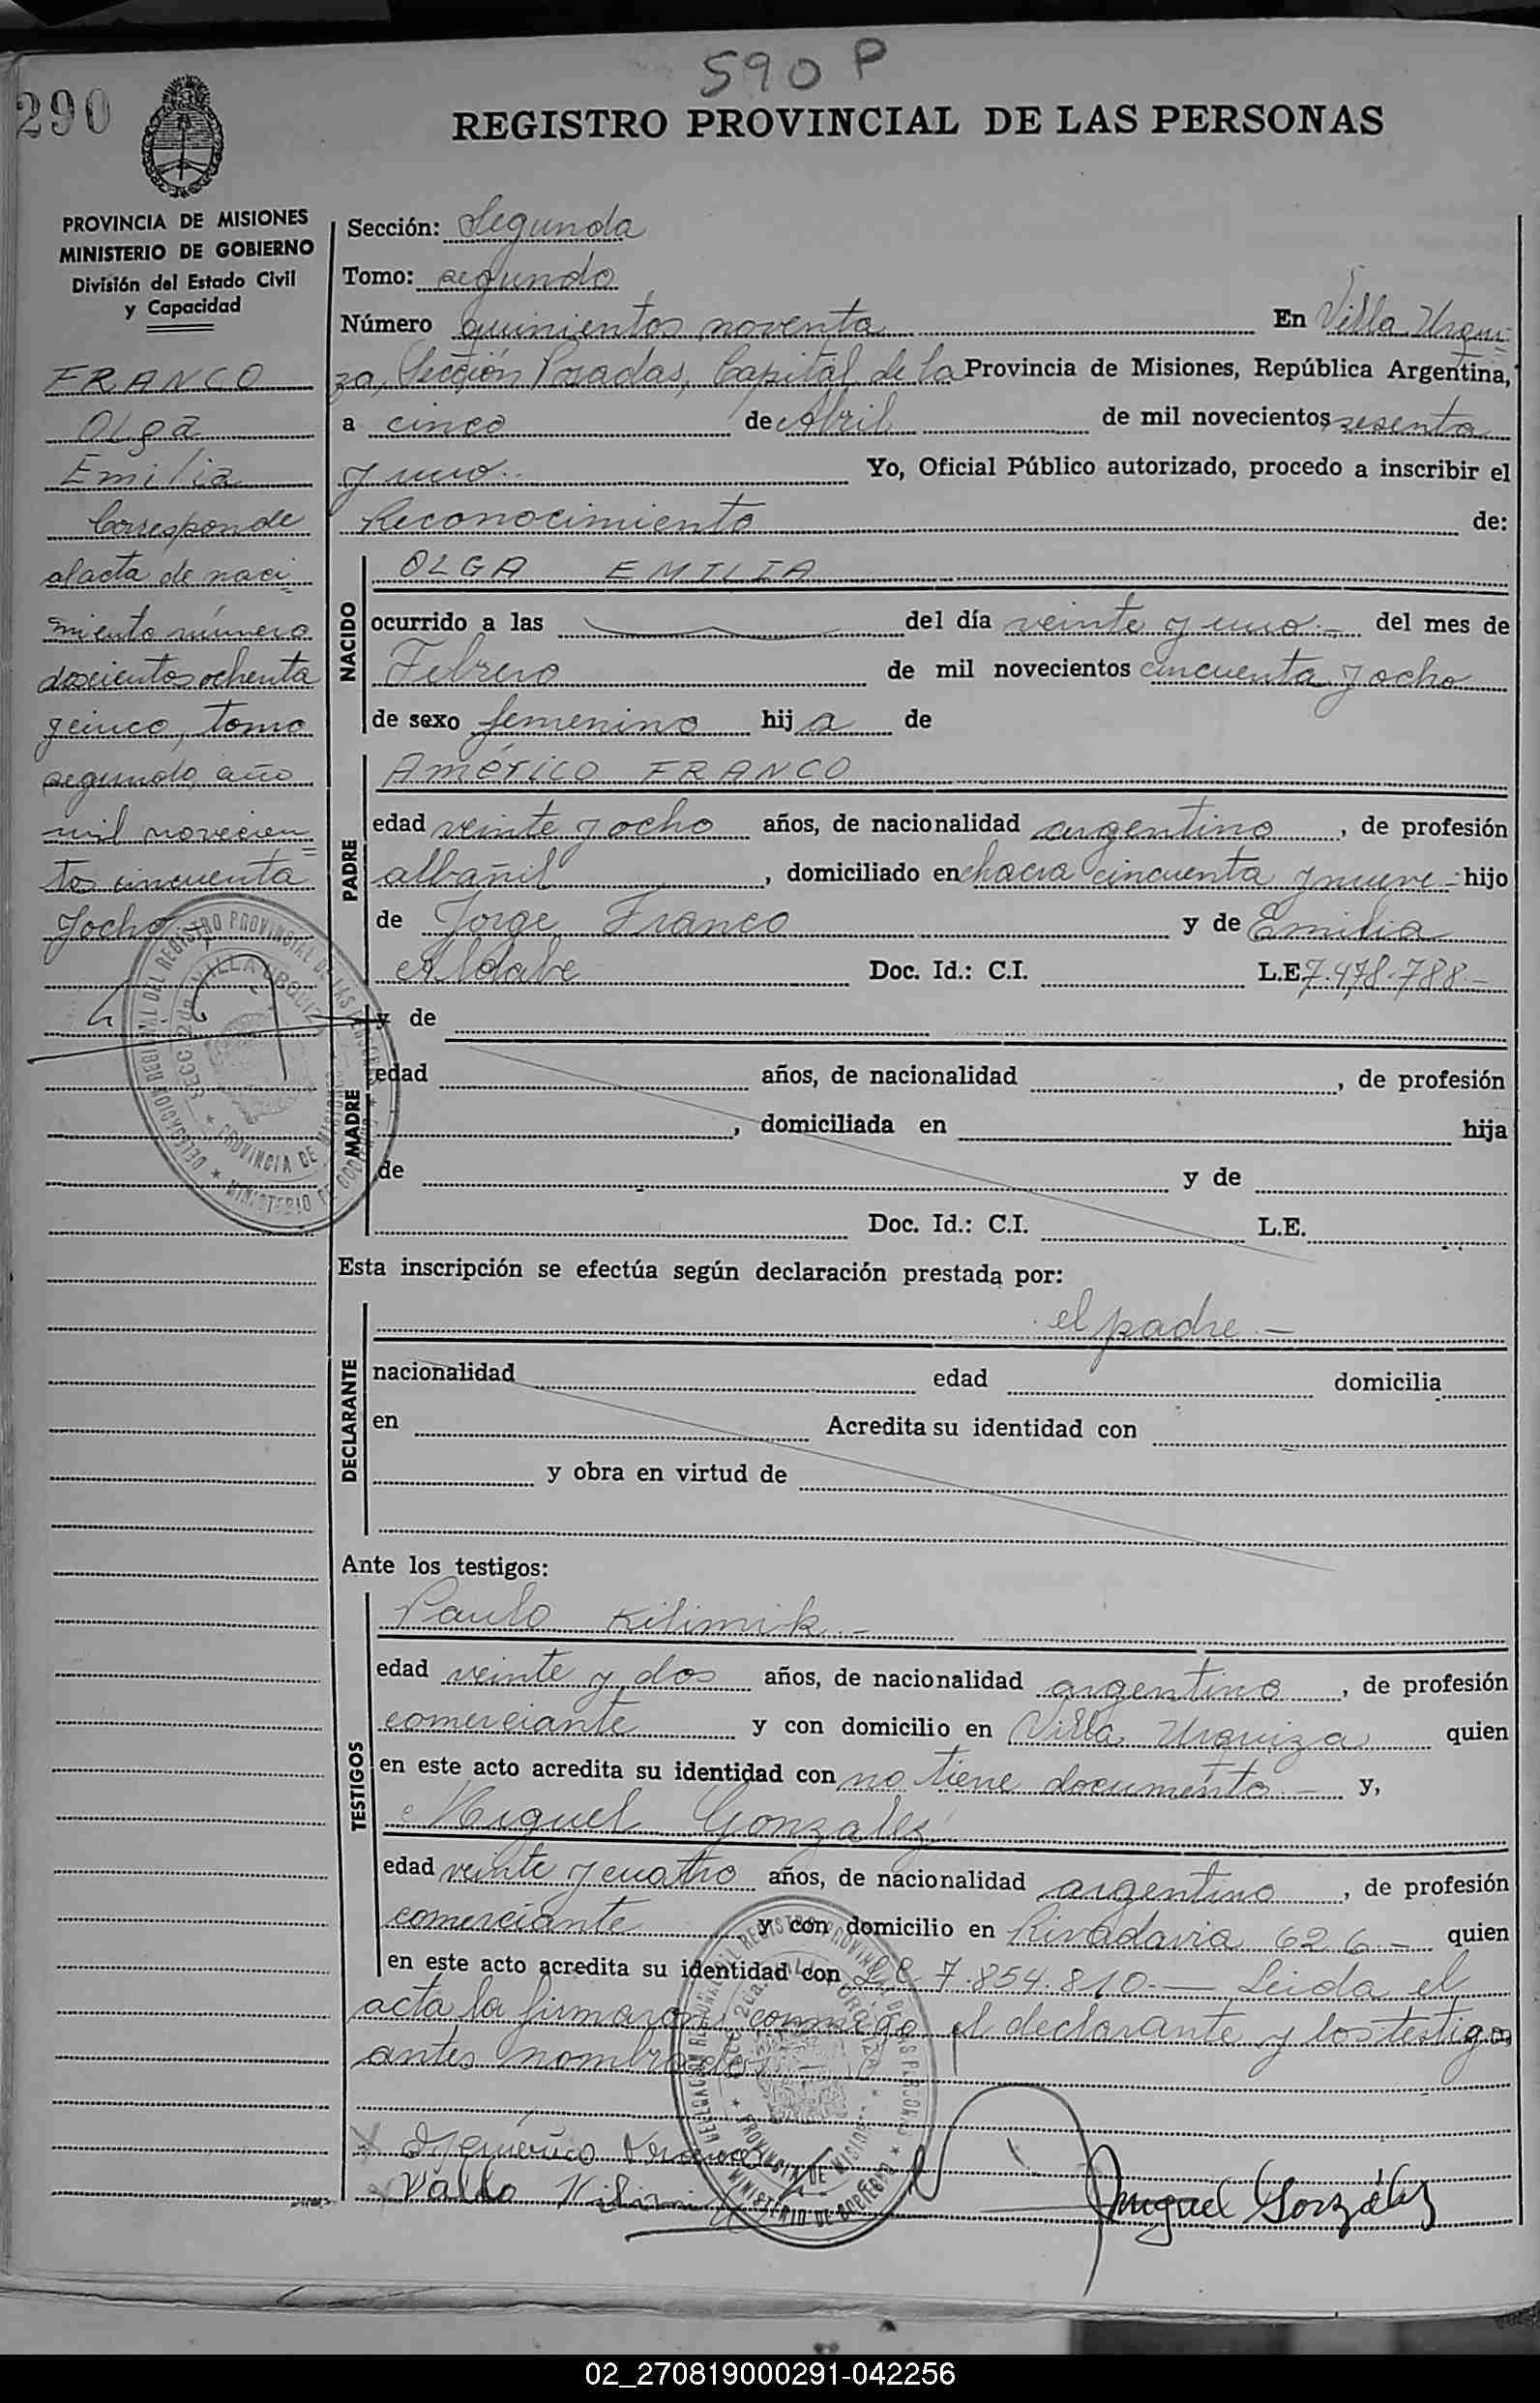 590 P
290
REGISTRO PROVINCIAL DE LAS PERSONAS
PROVINCIA DE MISIONES
MINISTERIO DE GOBIERNO
División del Estado Civil
y Capacidad
FRANCO
Olga
Emilia
Corresponde
al acta de naci
miento número
doscientos ochenta
y cinco, tomo
segundo, año
mil novecien
tos cincuenta
y ocho
Sección: Segunda
Tomo: segundo
Número quinientos noventa En Villa Urqui
za, Sección Posadas, Capital de la Provincia de Misiones, República Argentina,
a cinco de Abril de mil novecientos sesenta
y uno.- Yo, Oficial Público autorizado, procedo a inscribir el
Reconocimiento de:
NACIDO
OLGA EMILIA
ocurrido a las del día veinte y uno.- del mes de
Febrero de mil novecientos cincuenta y ocho
de sexo femenino hij a de
PADRE
Américo FRANCO
edad veinte y ocho años, de nacionalidad argentino, de profesión
albañil, domiciliado en chacra cincuenta y nueve - hijo
de Jorge Franco y de Emilia
Aldabe Doc. Id.: C.I. L.E 7.478.788.-
MADRE
y de
edad años, de nacionalidad , de profesión
, domiciliada en hija
de y de
Doc. Id.: C.I. L.E.
Esta inscripción se efectúa según declaración prestada por:
DECLARANTE
el padre.-
nacionalidad edad domicilia
en Acredita su identidad con
y obra en virtud de
Ante los testigos:
TESTIGOS
Paulo Kilimik.-
edad veinte y dos años, de nacionalidad argentino, de profesión
comerciante y con domicilio en Villa Urquiza quien
en este acto acredita su identidad con no tiene documento.- y,
Miguel Gonzalez
edad veinte y cuatro años, de nacionalidad argentino, de profesión
comerciante y con domicilio en Rivadavia 626.- quien
en este acto acredita su identidad con L.E 7.854.810.- Leida el
acta la firmaron conmigo el declarante y los testigos
antes nombrados
DELEGACION REGIONAL DEL REGISTRO PROVINCIAL DE LAS PERSONAS
SECC. 2da. VILLA URQUIZA
PROVINCIA DE MISIONES
MINISTERIO DE GOBIERNO
Miguel González
02_270819000291-042256